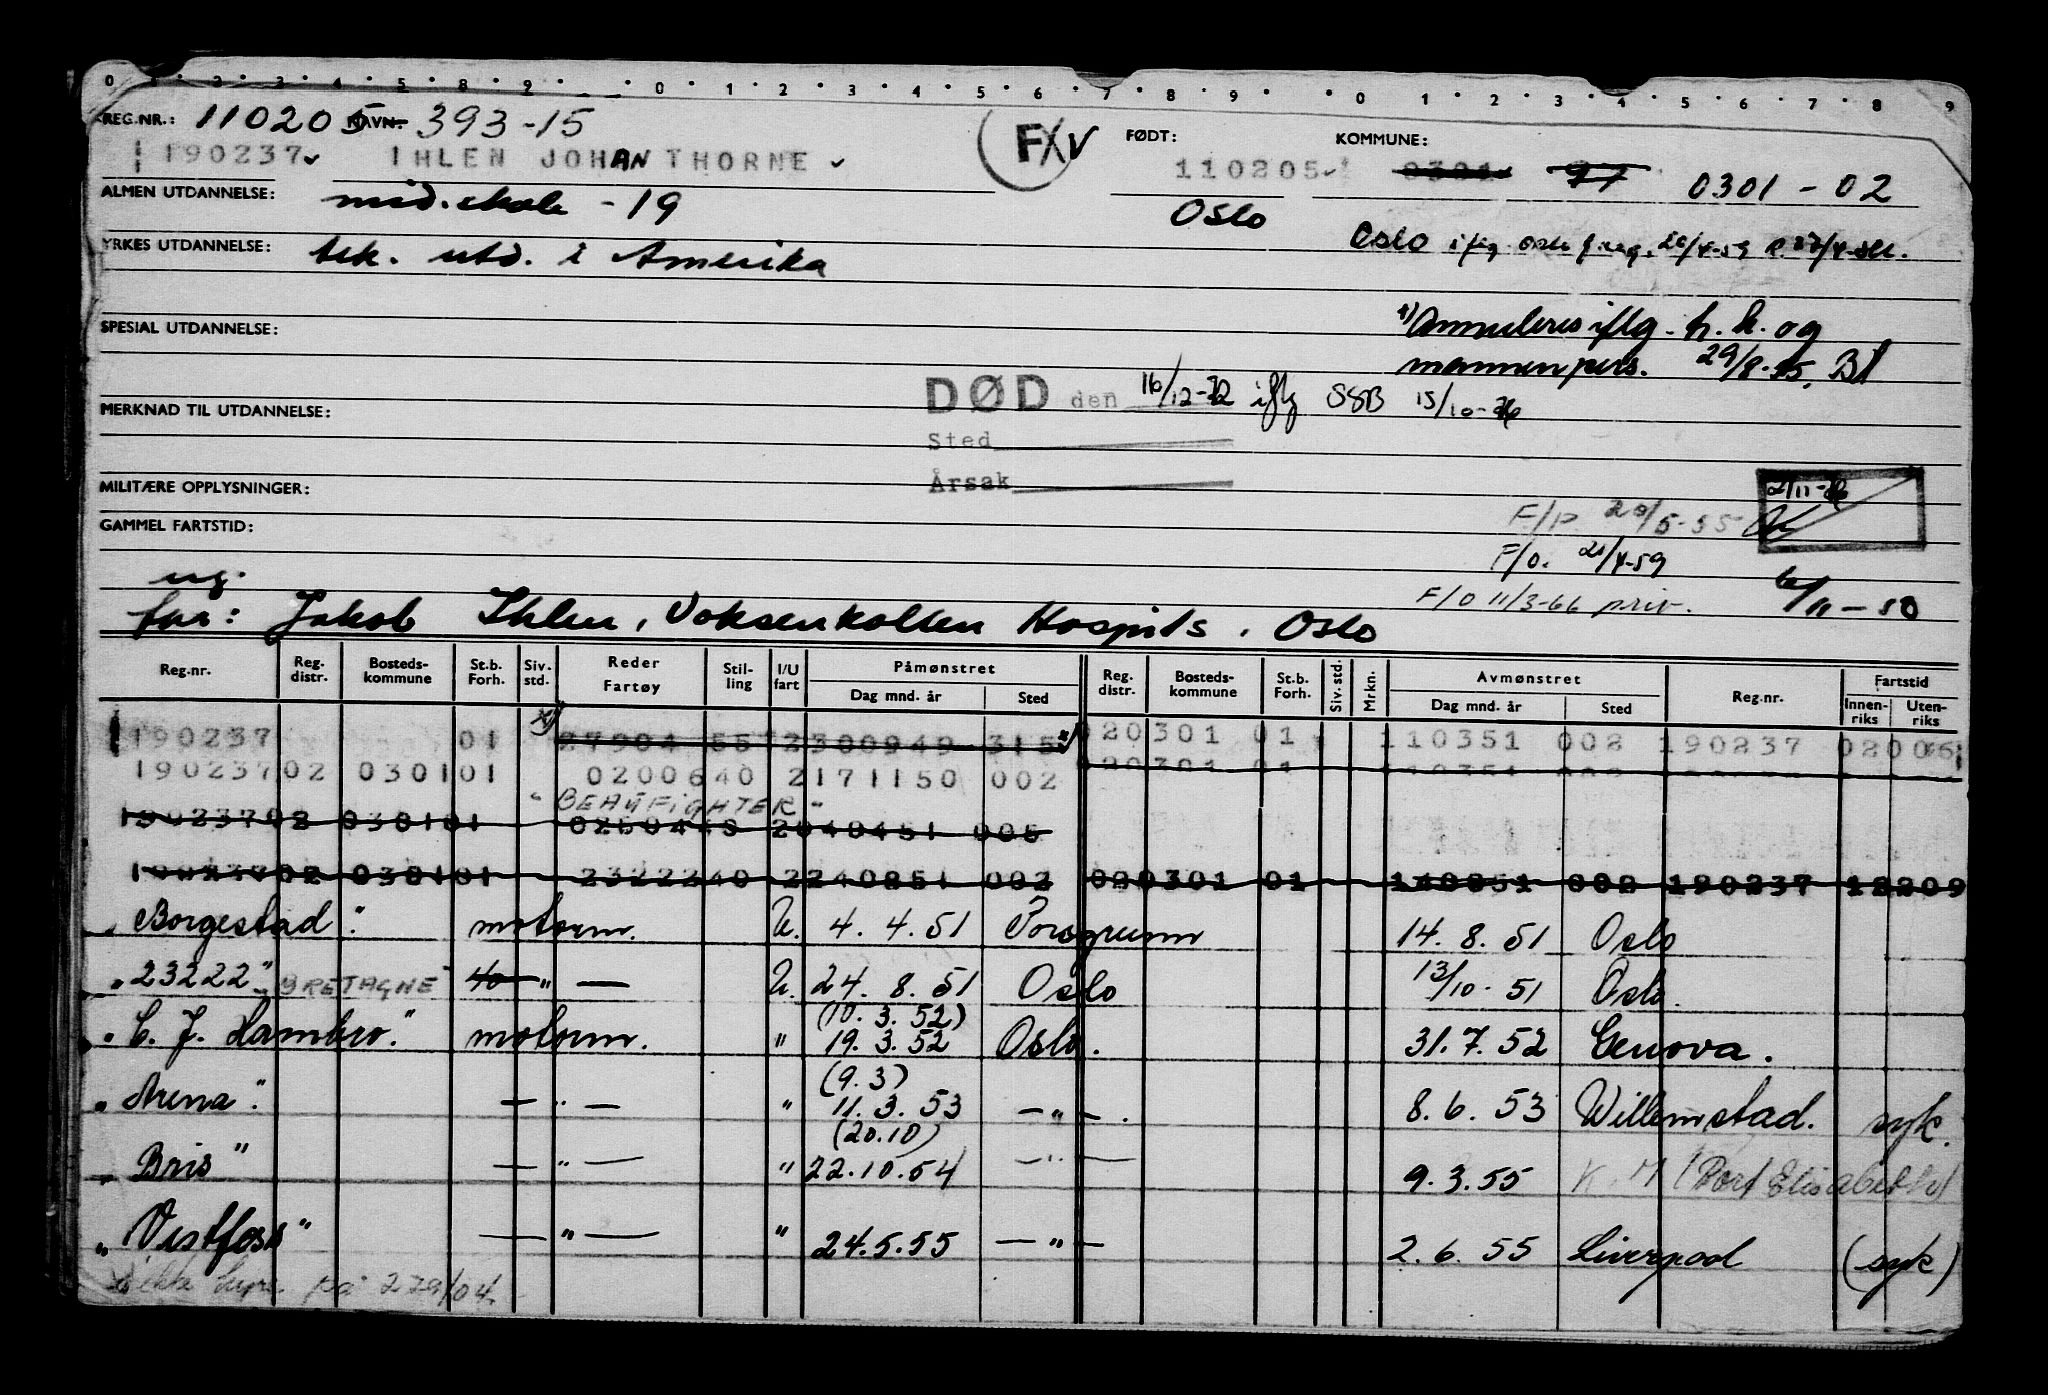 0 1 2 3 4 5 8 9 0 1 2 3 4 5 6 7 8 9 0 1 2 3 4 5 6 7 8 9
REG.NR.: 110205 NAVN: 393-15 FØDT: KOMMUNE:
190237 IHLEN JOHAN THORNE F/V 110205 0301 0301-02
ALMEN UTDANNELSE: mid.skole -19 Oslo
YRKES UTDANNELSE: tek. utd. i Amerika Oslo
SPESIAL UTDANNELSE: 1) Annuleres iflg. h.k. og
mannen pers. 29/8-55. Bl
DØD den 16/12-72 iflg SSB 15/10-76
MERKNAD TIL UTDANNELSE:
Sted
Årsak
MILITÆRE OPPLYSNINGER: 2/11-76
F/P 20/5-55
GAMMEL FARTSTID:
F/O. 21/4-59
ug. F/O 11/3-66 priv. 6/11-50
far: Jakob Ihlen, Voksenkollen Hospits, Oslo
Reg.nr. Reg. distr. Bosteds-kommune St.b. Forh. Siv. std. Reder Fartøy Stil-ling I/U fart Påmønstret Dag mnd. år Sted Reg. distr. Bosteds-kommune St.b. Forh. Siv. std. Mrkn. Avmønstret Dag mnd. år Sted Reg.nr. Fartstid Innen-riks Uten-riks
190237 01 27904 55 2 300949 315 020301 01 110351 002 190237 02005
190237 02 0301 01 0200640 2 171150 002
"BEAUFIGHTER"
190237 02 0301 01 0260440 2 040451 005
190237 02 0301 01 2322240 2 240851 002 020301 01 140851 002 190237 12209
"Borgestad" motorm. U. 4. 4. 51 Porsgrunn 14. 8. 51 Oslo
"23222" BRETAGNE 40 " — U. 24. 8. 51 Oslo 13/10. 51 Oslo.
(10. 3. 52)
"C. J. Hambro." motorm. " 19. 3. 52 Oslo. 31. 7. 52 Genova.
(9. 3)
"Arena". — " — " 11. 3. 53 — " —. 8. 6. 53 Willemstad. syk.
(20.10)
"Bris" — " — " 22.10.54 — " — 9. 3. 55 K.M (Port Elisabeth)
"Vestfoss" — " — " 24.5.55 — " — 2. 6. 55 Liverpool (syk)
ikke på 279/04